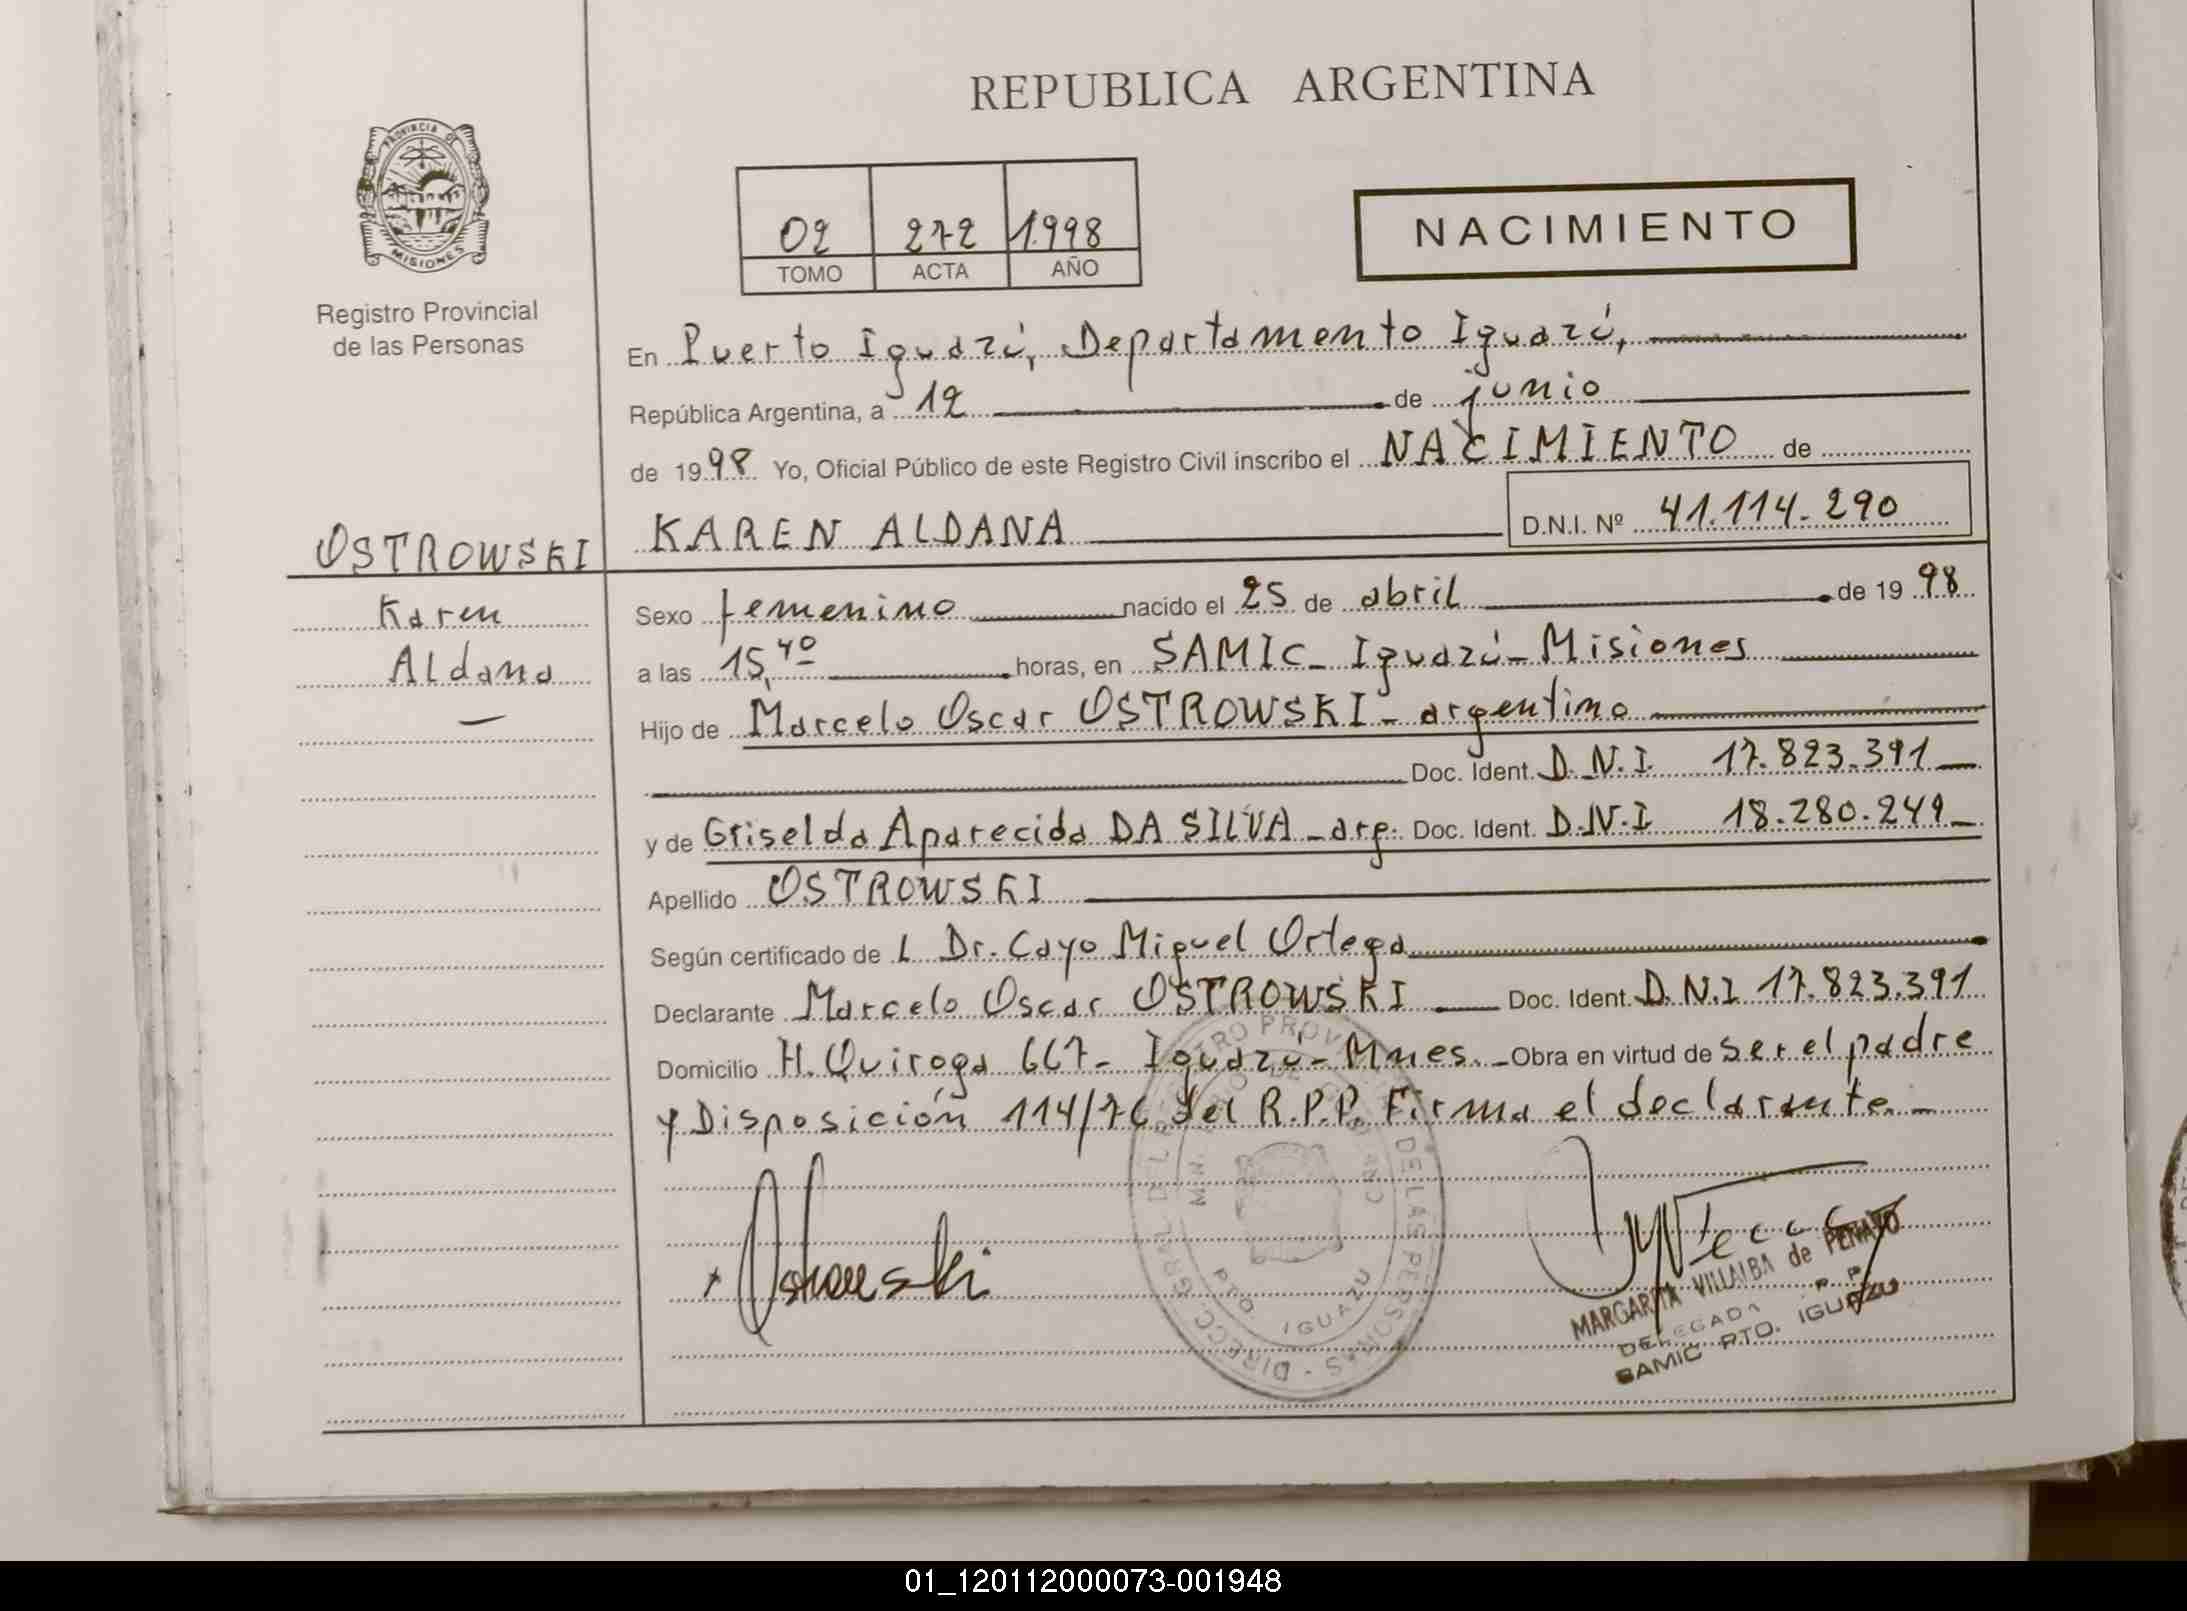 REPUBLICA ARGENTINA
PROVINCIA DE MISIONES
Registro Provincial
de las Personas
02 272 1.998
TOMO ACTA AÑO
NACIMIENTO
En Puerto Iguazú, Departamento Iguazú,
República Argentina, a 12 de junio
de 1998 Yo, Oficial Público de este Registro Civil inscribo el NACIMIENTO de
OSTROWSKI KAREN ALDANA D.N.I. Nº 41.114.290
Karen
Aldana
Sexo femenino nacido el 25 de abril de 1998
a las 15,40 horas, en SAMIC - Iguazú - Misiones
Hijo de Marcelo Oscar OSTROWSKI - argentino
Doc. Ident. D.N.I. 17.823.391
y de Griselda Aparecida DA SILVA - arg. Doc. Ident. D.N.I 18.280.249
Apellido OSTROWSKI
Según certificado de L Dr. Cayo Miguel Ortega
Declarante Marcelo Oscar OSTROWSKI Doc. Ident. D.N.I 17.823.391
Domicilio H. Quiroga 667 - Iguazú - Mnes. - Obra en virtud de ser el padre
y Disposición 114/76 del R.P.P. Firma el declarante. -
Ostrowski
MARGARITA VILLALBA de PENAYO
DELEGADA R. P. P.
SAMIC PTO. IGUAZU
DIRECC. GRAL. DEL REGISTRO PROVINCIAL DE LAS PERSONAS
PTO. IGUAZU
01_120112000073-001948